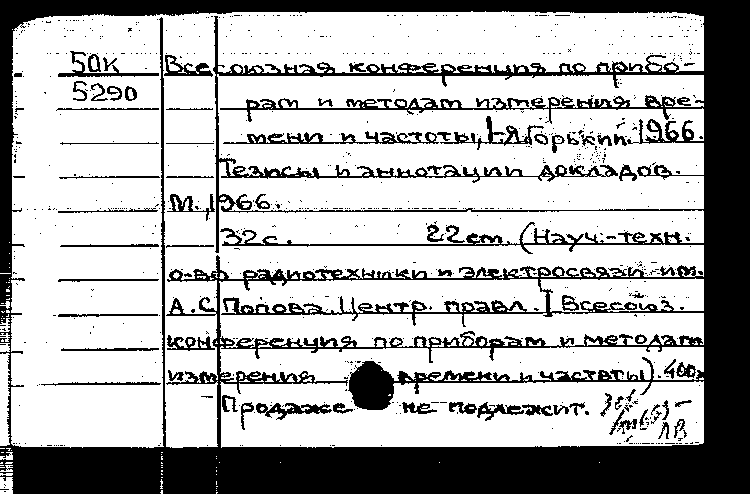 50к Всесоюзная конференция по прибо-
5290 рам и методам измерения вре-
мени и частоты, I-я. Горький. 1966.
Тезисы и аннотации докладов.
М., 1966.
32с. 22см. (Науч.-техн.
о-во радиотехники и электросвязи им.
А.С. Попова. Центр. правл. I Всесоюз.
конференция по приборам и методам
измерения времени и частоты). 400э
Продаже не подлежит.
ЛВ